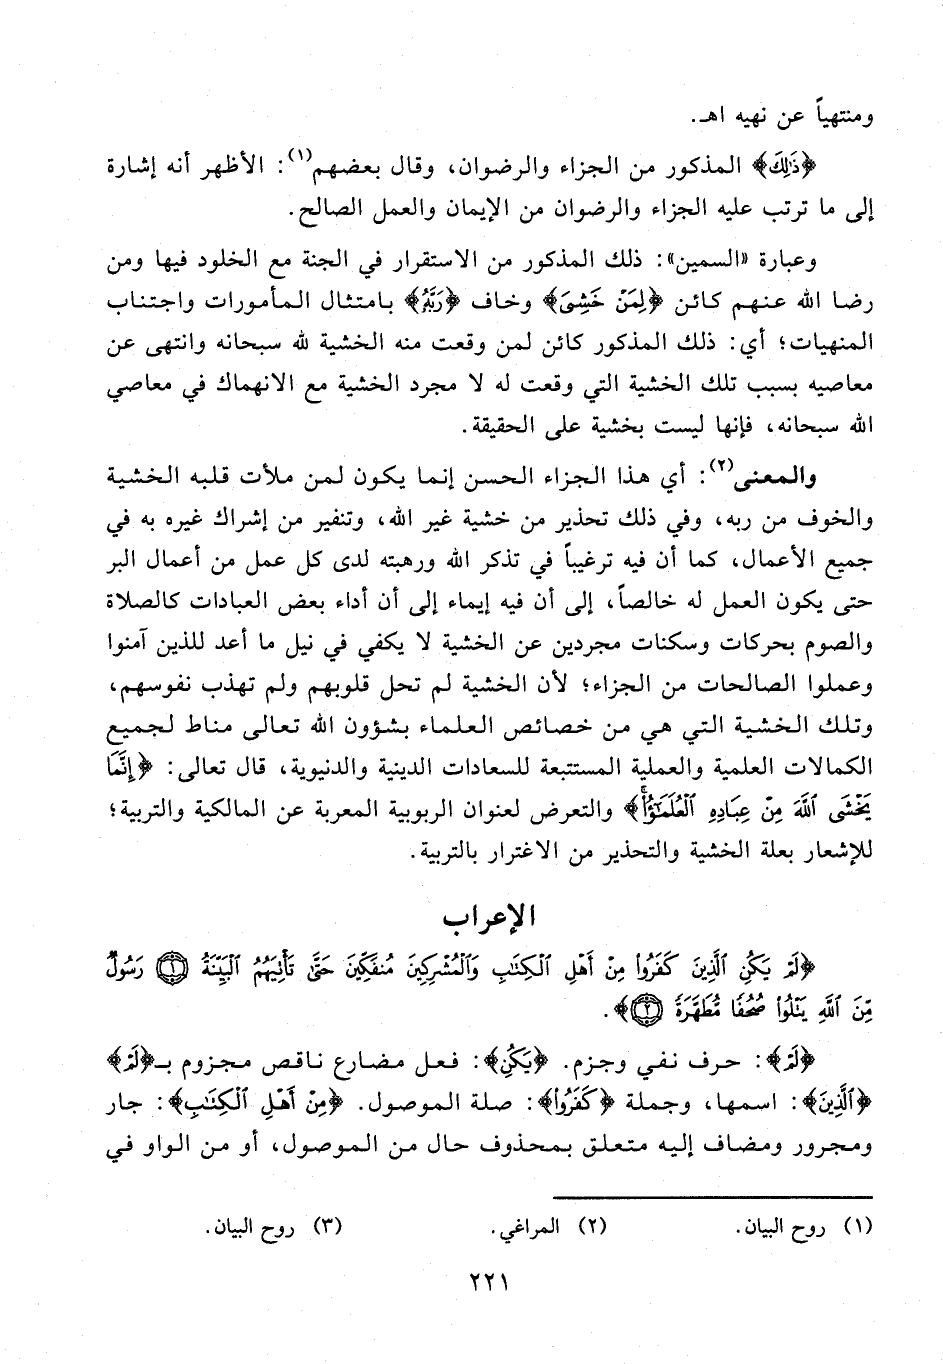 ومنتهياً عن نهيه اهـ.
﴿ذَٰلِكَ﴾ المذكور من الجزاء والرضوان، وقال بعضهم(١): الأظهر أنه إشارة
إلى ما ترتب عليه الجزاء والرضوان من الإيمان والعمل الصالح.
وعبارة «السمين»: ذلك المذكور من الاستقرار في الجنة مع الخلود فيها ومن
رضا الله عنهم كائن ﴿لِمَنْ خَشِىَ﴾ وخاف ﴿رَبَّهُۥ﴾ بامتثال المأمورات واجتناب
المنهيات؛ أي: ذلك المذكور كائن لمن وقعت منه الخشية لله سبحانه وانتهى عن
معاصيه بسبب تلك الخشية التي وقعت له لا مجرد الخشية مع الانهماك في معاصي
الله سبحانه، فإنها ليست بخشية على الحقيقة.
والمعنى(٢): أي هذا الجزاء الحسن إنما يكون لمن ملأت قلبه الخشية
والخوف من ربه، وفي ذلك تحذير من خشية غير الله، وتنفير من إشراك غيره به في
جميع الأعمال، كما أن فيه ترغيباً في تذكر الله ورهبته لدى كل عمل من أعمال البر
حتى يكون العمل له خالصاً، إلى أن فيه إيماء إلى أن أداء بعض العبادات كالصلاة
والصوم بحركات وسكنات مجردين عن الخشية لا يكفي في نيل ما أعد للذين آمنوا
وعملوا الصالحات من الجزاء؛ لأن الخشية لم تحل قلوبهم ولم تهذب نفوسهم،
وتلك الخشية التي هي من خصائص العلماء بشؤون الله تعالى مناط لجميع
الكمالات العلمية والعملية المستتبعة للسعادات الدينية والدنيوية، قال تعالى: ﴿إِنَّمَا
يَخْشَى ٱللَّهَ مِنْ عِبَادِهِ ٱلْعُلَمَـٰٓؤُا۟ۚ﴾ والتعرض لعنوان الربوبية المعربة عن المالكية والتربية؛
للإشعار بعلة الخشية والتحذير من الاغترار بالتربية.
الإعراب
﴿لَمْ يَكُنِ ٱلَّذِينَ كَفَرُوا۟ مِنْ أَهْلِ ٱلْكِتَـٰبِ وَٱلْمُشْرِكِينَ مُنفَكِّينَ حَتَّىٰ تَأْتِيَهُمُ ٱلْبَيِّنَةُ ١ رَسُولٌ
مِّنَ ٱللَّهِ يَتْلُوا۟ صُحُفًا مُّطَهَّرَةً ٢﴾.
﴿لَمْ﴾: حرف نفي وجزم. ﴿يَكُنِ﴾: فعل مضارع ناقص مجزوم بـ﴿لَمْ﴾
﴿ٱلَّذِينَ﴾: اسمها، وجملة ﴿كَفَرُوا۟﴾: صلة الموصول. ﴿مِنْ أَهْلِ ٱلْكِتَـٰبِ﴾: جار
ومجرور ومضاف إليه متعلق بمحذوف حال من الموصول، أو من الواو في
(١) روح البيان. (٢) المراغي. (٣) روح البيان.
٢٢١